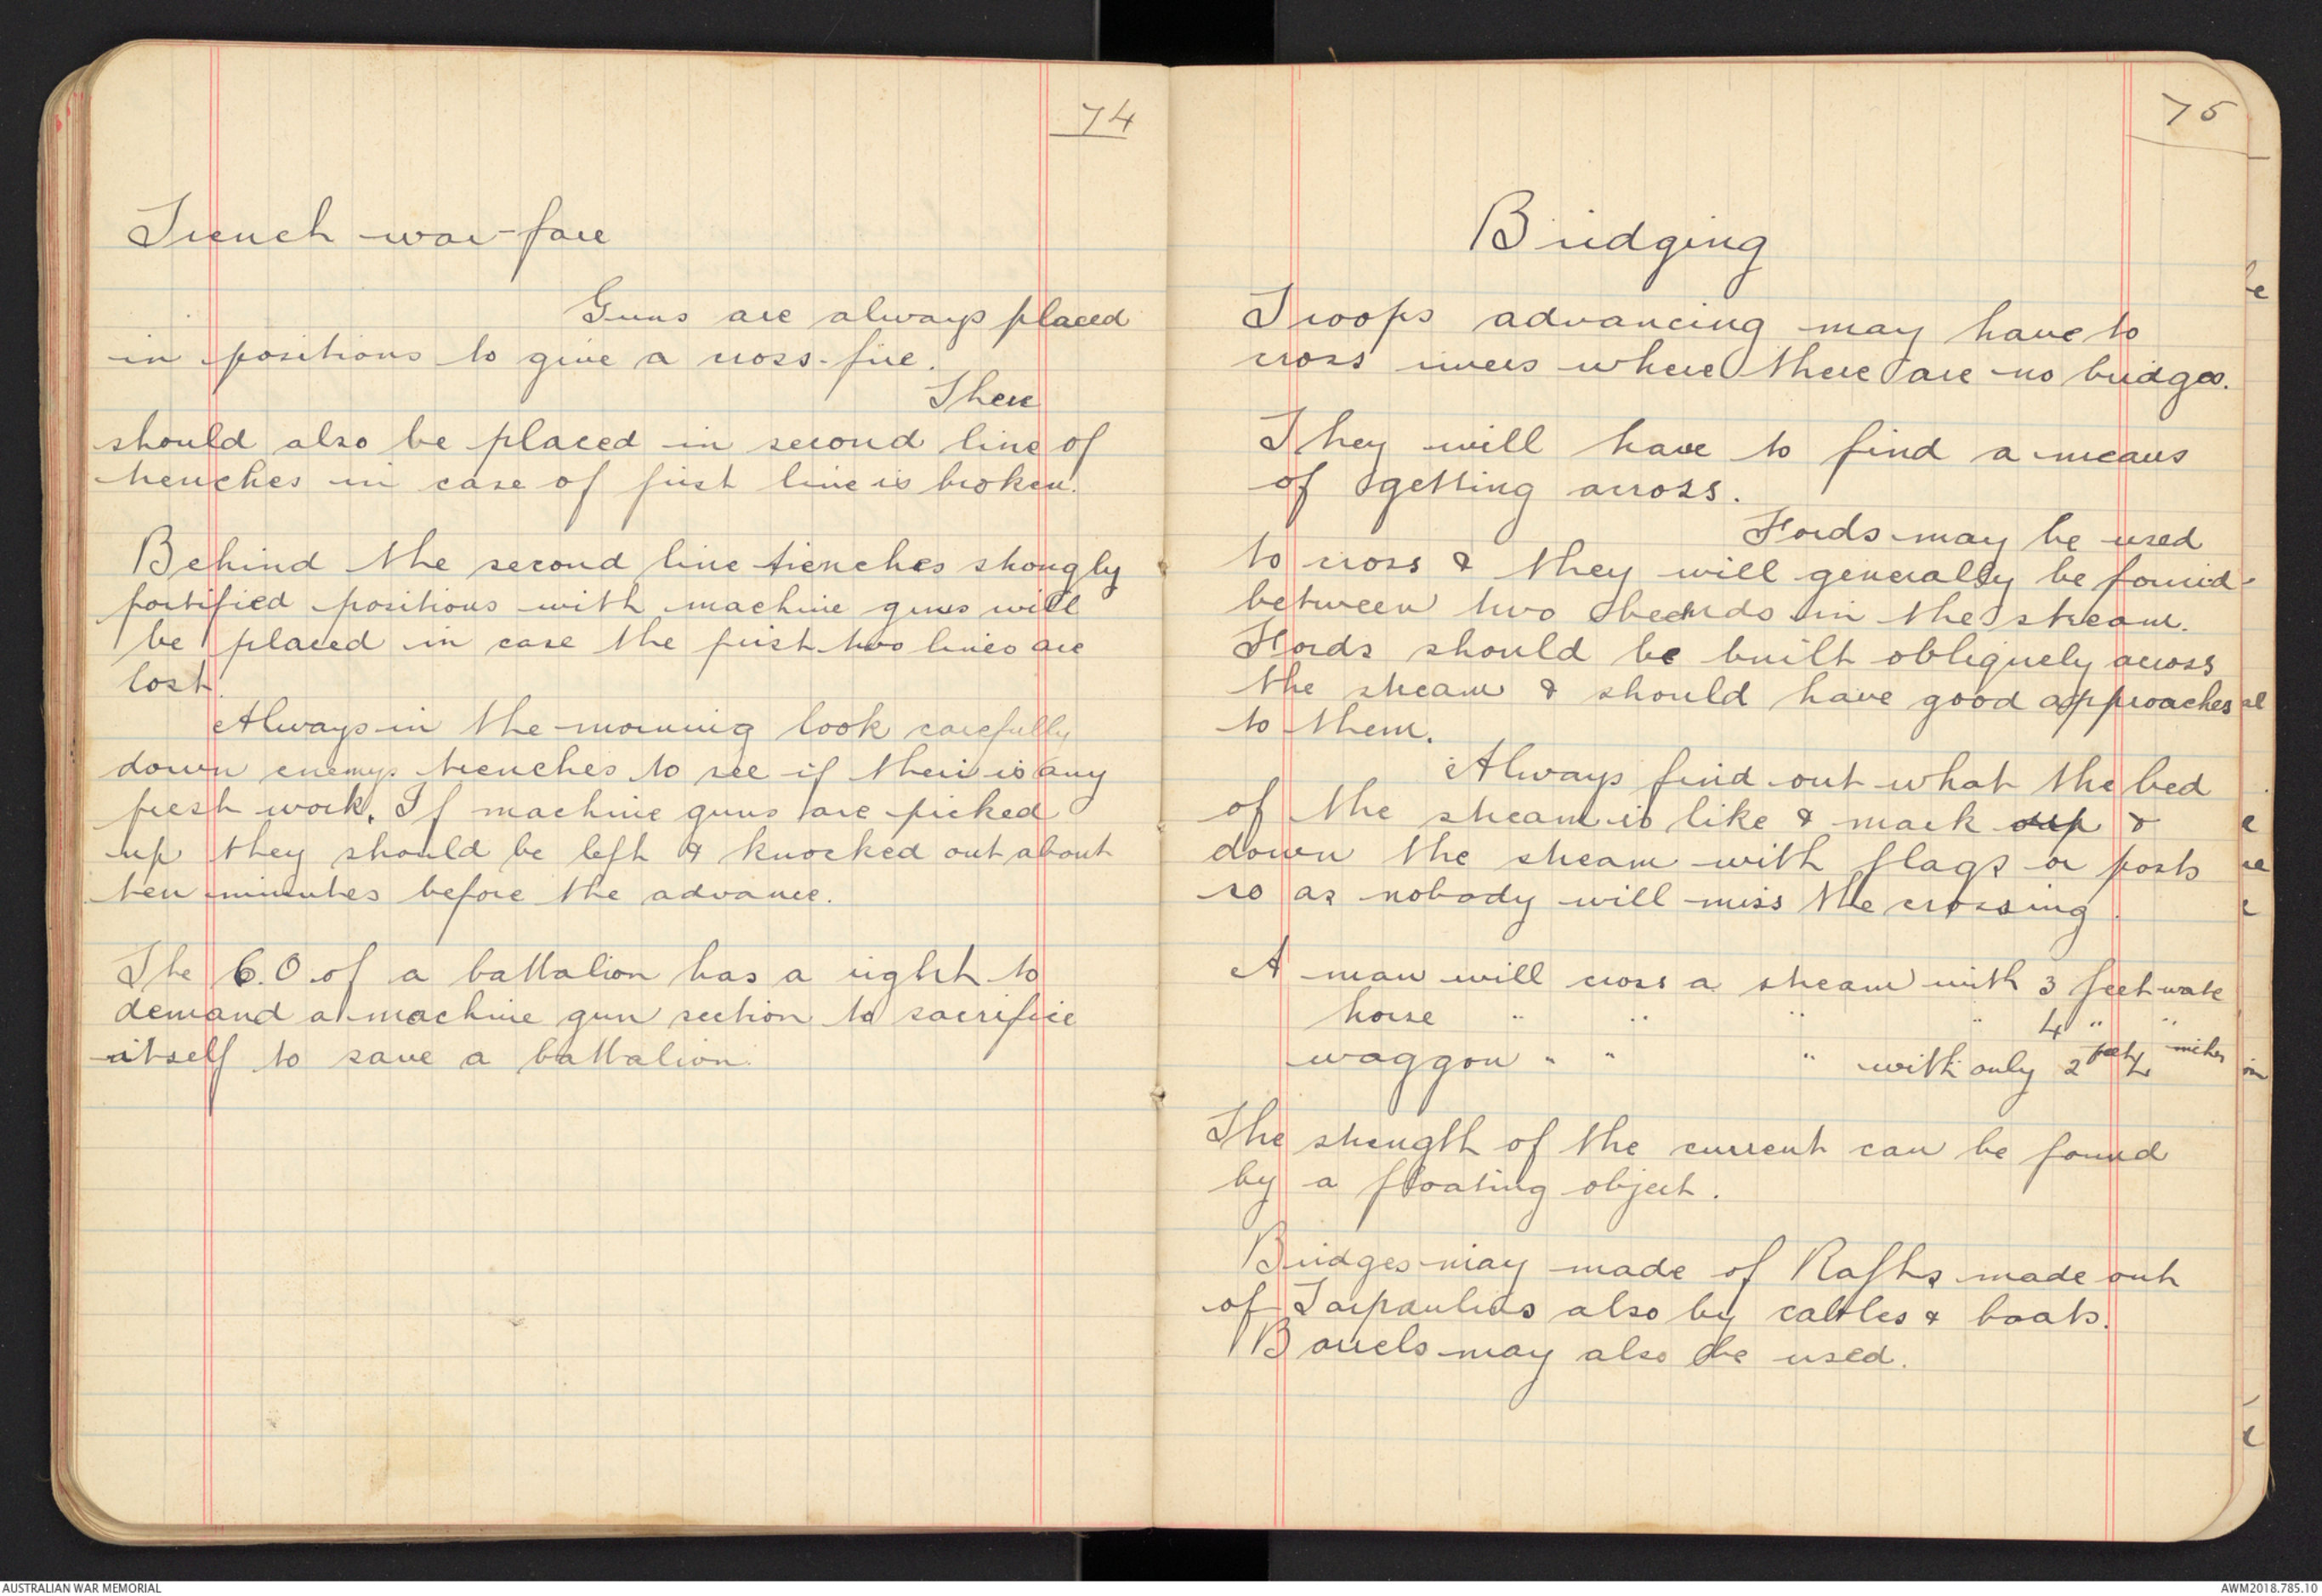 74
Trench war-fare
Guns are always placed
in positions to give a cross-fire.
There
should also be placed in second line of
trenches in case of first line is broken.
Behind the second line trenches strongly
fortified positions with machine guns will
be placed in case the first two lines are
lost.
Always in the morning look carefully
down enemys trenches to see if their is any
fresh work. If machine guns are picked
up they should be left & knocked out about
ten minutes before the advance.
The C.O of a battalion has a right to
demand a machine gun section to sacrifice
itself to save a battalion.
75
Bridging
Troops advancing may have to
cross rivers where there are no bridges.
They will have to find a means
of getting across.
Fords may be used
to cross & they will generally be found
between two in the stream.
Fords should be built obliquely across
the stream & should have good approaches
to them.
Always find out what the bed
of the stream is like & mark up &
down the stream with flags or posts
so as nobody will miss the crossing.
A man will cross a stream with 3 feet wate
horse " " " " 4 " "
waggon " " " with only 2 feet 4 inches
The strength of the current can be found
by a floating object.
Bridges may made of Rafts made out
of Tarpaulins also by cables & boats.
Barrels may also be used.
AUSTRALIAN WAR MEMORIAL
AWM2018.785.10